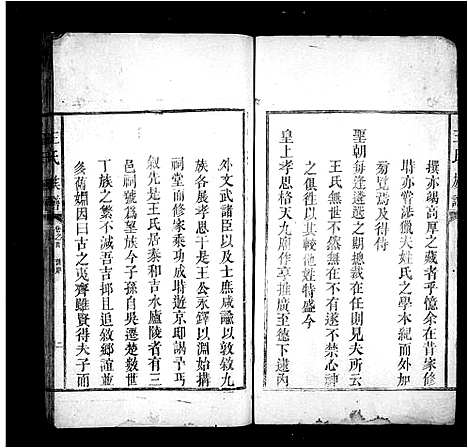 撰亦端高厚之藏者乎憶余在昔家修
時亦嘗涉獵夫姓氏之學本紀而外加
緟覽焉及得侍
聖朝每逢遴選之期總裁在則見夫所云
王氏無世不然無在不有不禁心神
之俱以其較他姓特盛今
皇上孝思格天九廟作享推廣至德下逮內
外文武諸臣以及士庶咸諭以敦敘九
族各展孝思于是王公承鐸以淵始搆
祠堂而修家乘功成時遊京邸謁予丐
叙先是王氏居泰和吉水廬陵者有三
邑祠號為望族今子孫自吳遷楚數世
丁族之繁亦不減吾吉邨與敘鄉誼並
多舊嫺因曰古之夷齊雖賢得夫子而
王氏族譜
卷之首
二